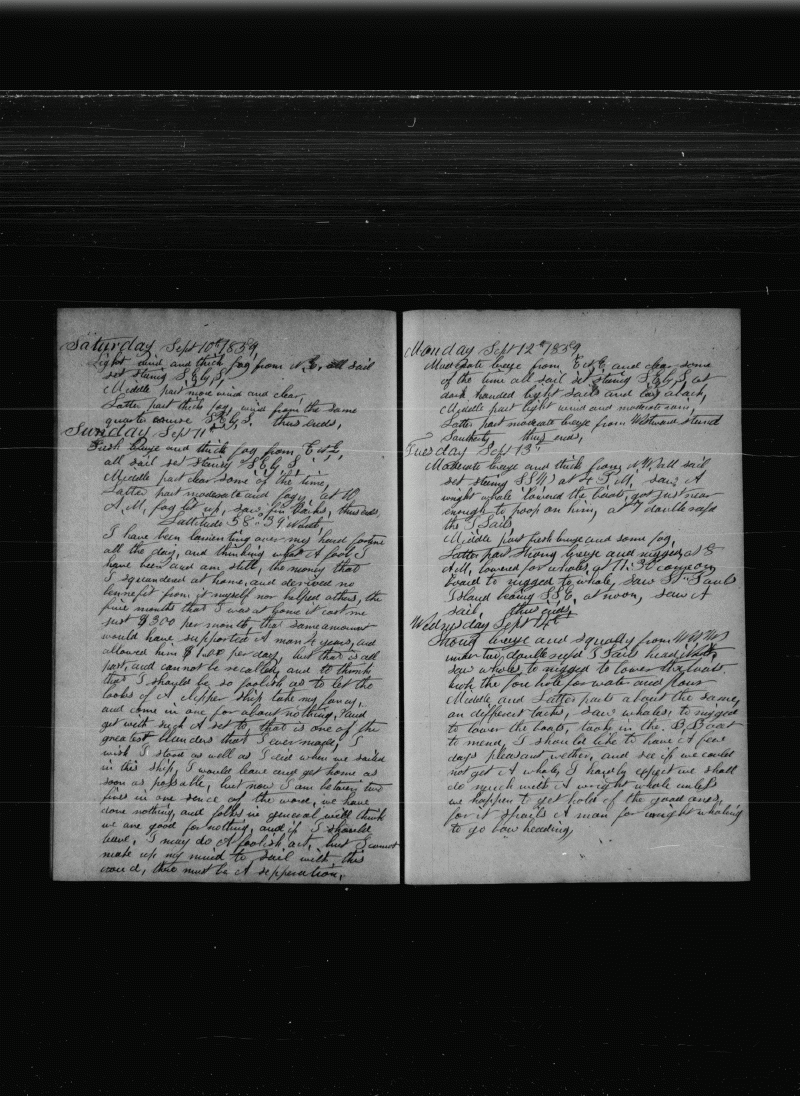 Saturday Sept 10th 1859
Light wind and thick fog from N.E, all sail
set stering S.E by S,
Middle part more wind and clear,
Latter part thick fog, wind from the same
quarter course S.E by S. thus ends,
Sunday, Sept 11th
Fresh breeze and thick fog from E N E,
all sail set stering S E by S
Middle part clear some of the time,
Latter part moderate and fogy, at 10
A.M, fog lit up, saw fin backs, thus ends
Lattitude 38° 39 South
I have been lamenting over my hard fortune
all the day, and thinking what A fool I
have been and am still, the money that
I squandered at home, and derived no
bennefit from it myself nor helped others, the
five months that I was at home it cost me
just $300 per month, the same amount
would have supported A man 4 years, and
allowed him $ per day, but that is all
past, and cannot be recalled, and to think
that I should be so foolish as to let the
looks of A clipper ship take my fancy,
and come in one for about nothing, and
get with such A set to, that is one of the
greatest blunders that I ever made, I
wish I stood as well as I did when we sailed
in this ship, I would leave and get home as
soon as possable, but now I am between two
fires in one sence of the word, we have
done nothing, and folks in general will think
we are good for nothing, and if I should
leave, I may do A foolish act, but I cannot
make up my mind to sail with this
there must be A sepperation,
Monday Sept 12th 1859
Moderate breeze from E N E and clear some
of the time all sail set stering S.E by S, at
dark handed light sails and aback,
Middle part light wind and moderate rain,
Latter part moderate breeze from Westward sterid
Southerly thus ends,
Tuesday Sept 13th
Moderate breeze and thick from N.W, all sail
set stering S S W, at 4 P.M, saw A
wright whale lowered the boats, got just near
enough to poop on him, at 7 double reefd
the T Sails,
Middle part fresh breeze and some fog,
Latter part Strong breeze and rugged, at 8
A.M, lowered for whales, at 11.30 came on
board to rugged to whale, saw St Pauls
Island bearing S S E, at noon, saw A
sail, thus ends
Wednesday Sept 14th
Strong breeze and squally from W N W
under two double reefd T Sails head South,
saw whales to rugged to lower the boats
broke the fore hole for water and flour
Middle and Latter parts about the same,
on different tacks, saw whales, to rugged
to lower the boats, took in the B Boat
to mend, I should like to have A few
days pleasant wether, and see if we could
not get A whale, I hardly expect we shall
do much with A wright whale unless
we happen to get hold of the good ones,
for it spoils A man for wright whaling
to go bow heading,